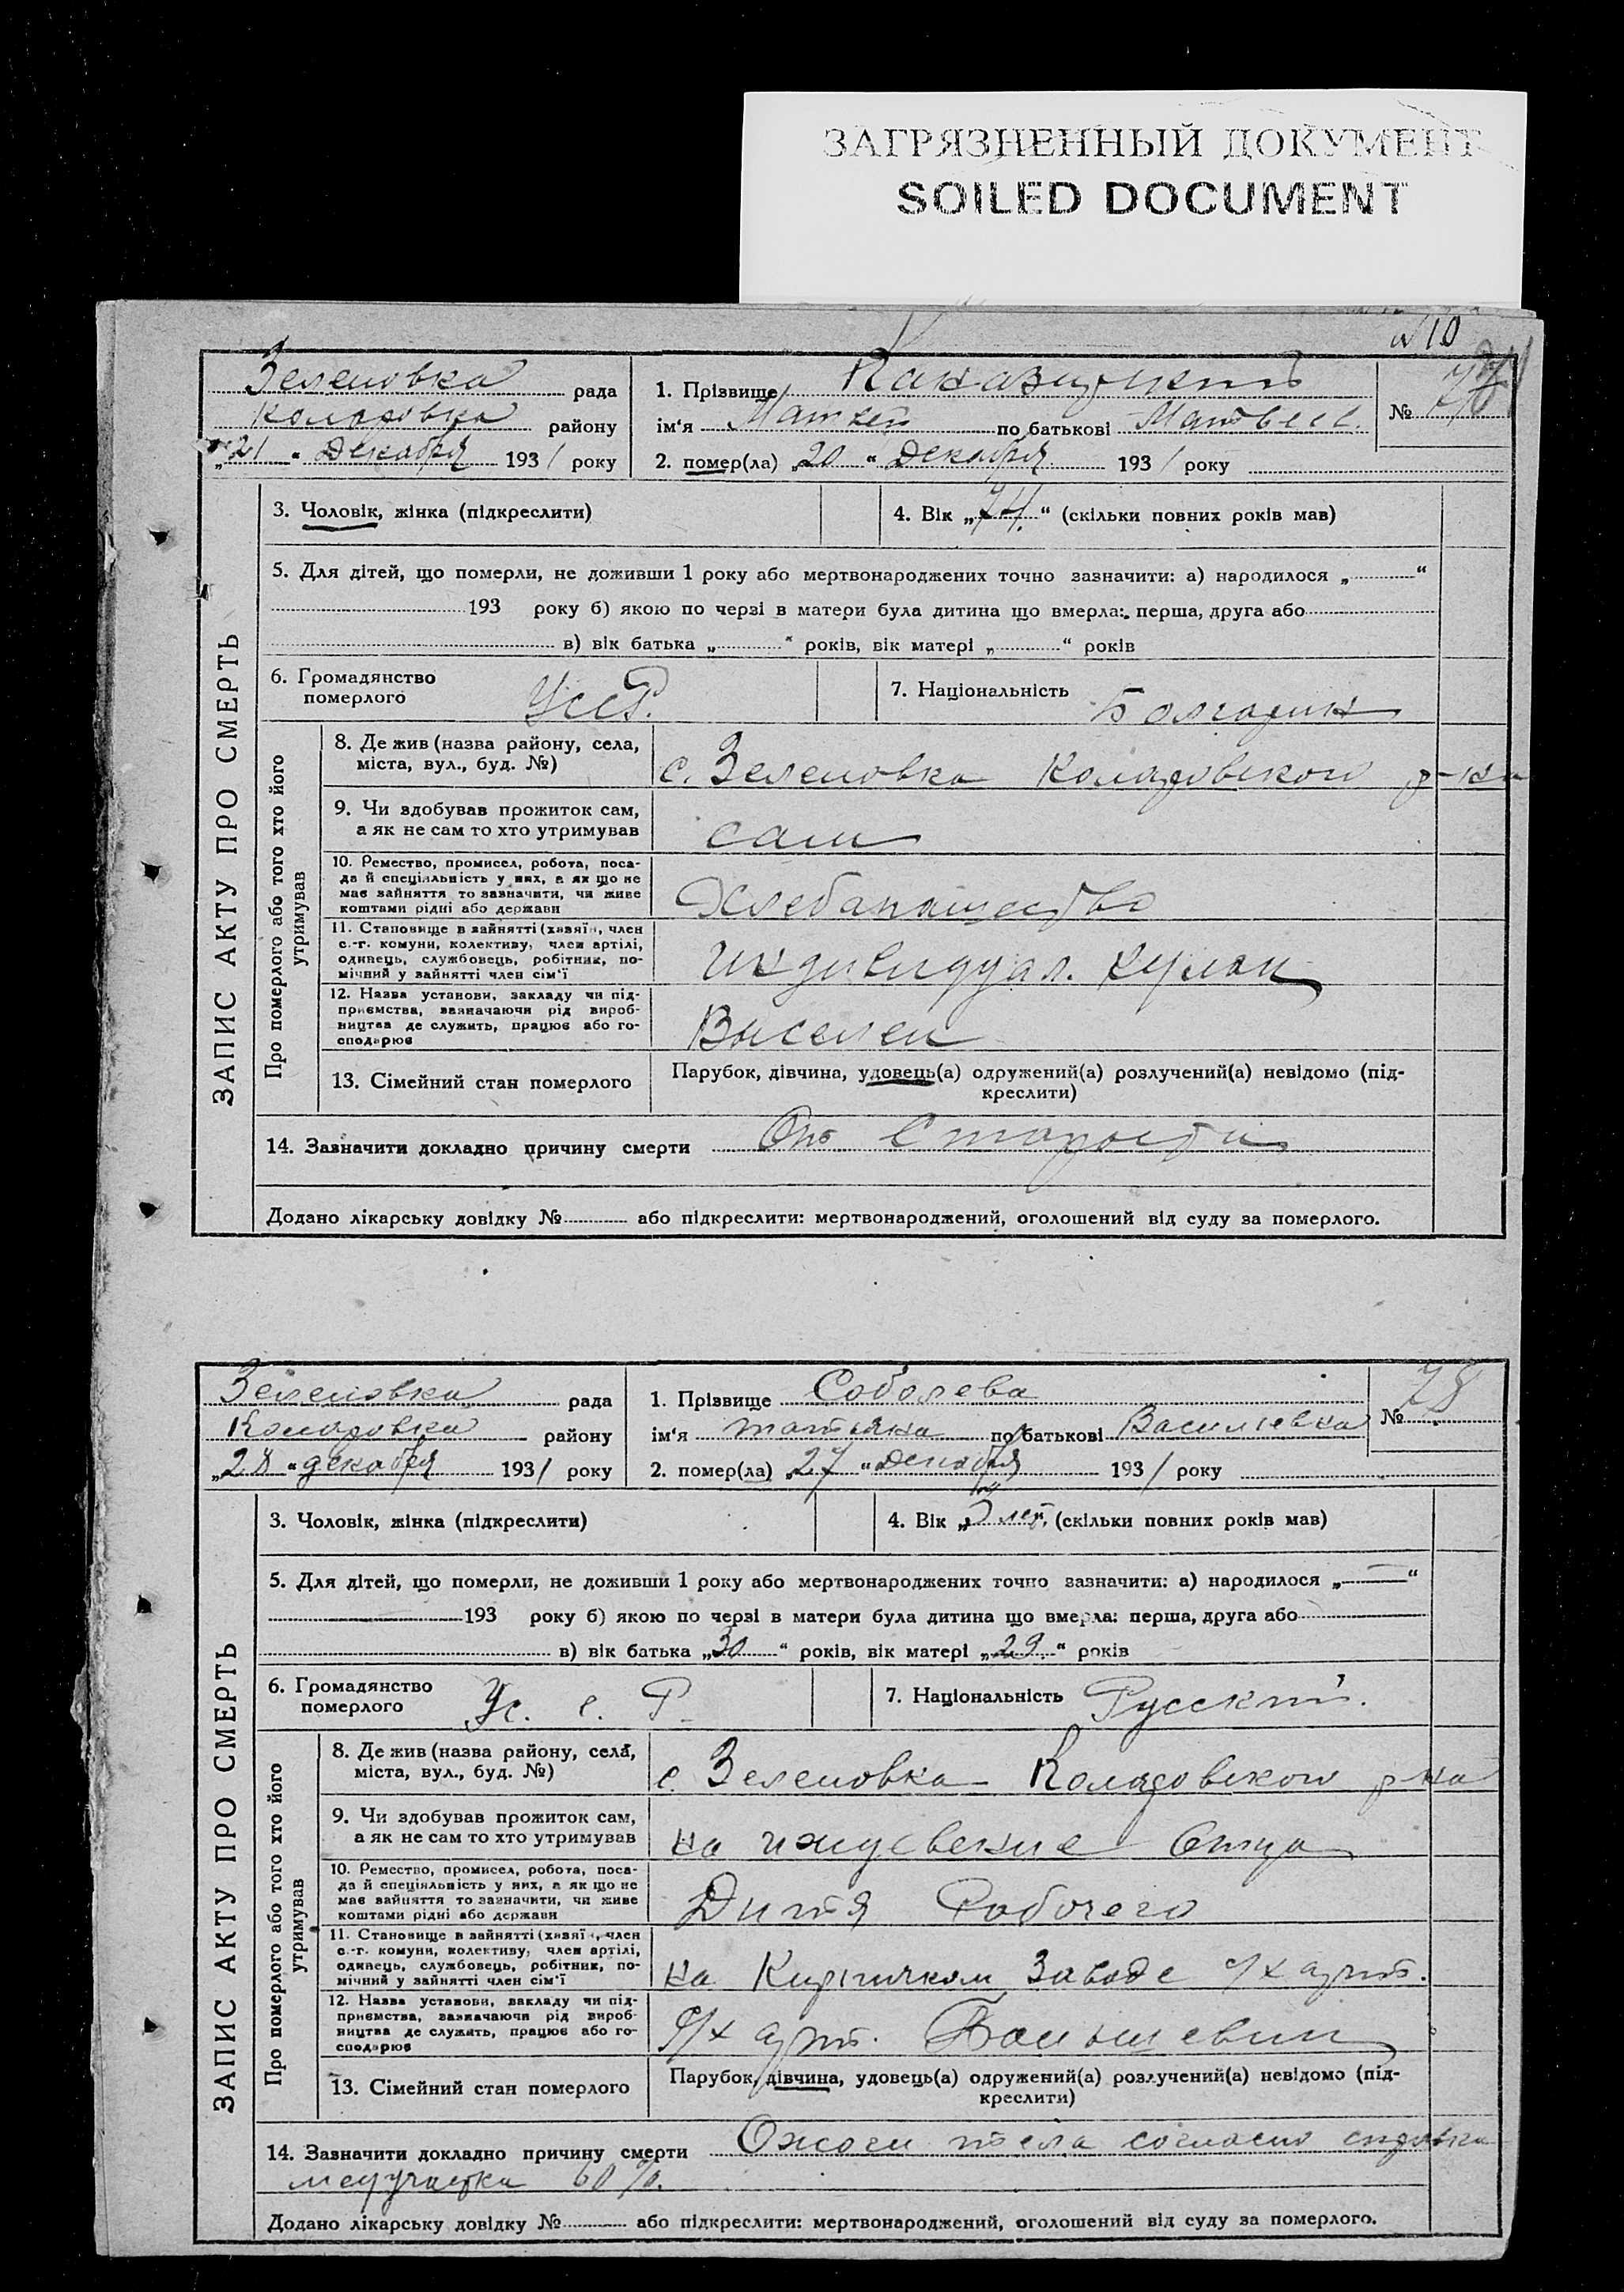 ЗАГРЯЗНЕННЫЙ ДОКУМЕНТ
SOILED DOCUMENT
№10
Зеленовка рада
Коларовка району
„21“ Декабря 1931 року
1. Прізвище
ім'я Матвей по батькові Матвеев.
2. помер(ла) „20“ Декабря 1931 року
№ 77
ЗАПИС АКТУ ПРО СМЕРТЬ
3. Чоловік, жінка (підкреслити)
4. Вік „74“ (скільки повних років мав)
5. Для дітей, що померли, не доживши 1 року або мертвонароджених точно зазначити: а) народилося „ “
193 року б) якою по черзі в матери була дитина що вмерла: перша, друга або
в) вік батька „ “ років, вік матері „ “ років
6. Громадянство померлого УССР.
7. Національність Болгарин
Про померлого або того хто його утримував
8. Де жив (назва району, села,
міста, вул., буд. №)
с. Зеленовка Коларовского р-на
9. Чи здобував прожиток сам,
а як не сам то хто утримував
сам
10. Ремество, промисел, робота, поса-
да й спеціяльність у них, а як що не
має зайняття то зазначити, чи живе
коштами рідні або держави
Хлебапашество
11. Становище в зайнятті (хазяїн, член
с.-г. комуни, колективу, член артілі,
одинець, службовець, робітник, по-
мічний у зайнятті член сім'ї
индивидуал. кулак
12. Назва установи, закладу чи під-
приємства, зазначаючи рід вироб-
ництва де служить, працює або го-
сподарює
Выселен
13. Сімейний стан померлого
Парубок, дівчина, удовець(а) одружений(а) розлучений(а) невідомо (під-
креслити)
14. Зазначити докладно причину смерти От Старости
Додано лікарську довідку № або підкреслити: мертвонароджений, оголошений від суду за померлого.
Зеленовка рада
Коларовка району
„28“ декабря 1931 року
1. Прізвище Соболева
ім'я татьяна по батькові Василевна
2. помер(ла) „27“ Декабря 1931 року
№ 78
ЗАПИС АКТУ ПРО СМЕРТЬ
3. Чоловік, жінка (підкреслити)
4. Вік „3 лет“ (скільки повних років мав)
5. Для дітей, що померли, не доживши 1 року або мертвонароджених точно зазначити: а) народилося „—“
193 року б) якою по черзі в матери була дитина що вмерла: перша, друга або
в) вік батька „30“ років, вік матері „29“ років
6. Громадянство померлого Ус. с. Р.
7. Національність Русский.
Про померлого або того хто його утримував
8. Де жив (назва району, села,
міста, вул., буд. №)
с. Зеленовка Коларовского р-на
9. Чи здобував прожиток сам,
а як не сам то хто утримував
на иждевение Отца
10. Ремество, промисел, робота, поса-
да й спеціяльність у них, а як що не
має зайняття то зазначити, чи живе
коштами рідні або держави
Дитя Робочего
11. Становище в зайнятті (хазяїн, член
с.-г. комуни, колективу, член артілі,
одинець, службовець, робітник, по-
мічний у зайнятті член сім'ї
на Кирпичном Заводе с/х арт.
12. Назва установи, закладу чи під-
приємства, зазначаючи рід вироб-
ництва де служить, працює або го-
сподарює
с/х арт. Большевик
13. Сімейний стан померлого
Парубок, дівчина, удовець(а) одружений(а) розлучений(а) невідомо (під-
креслити)
14. Зазначити докладно причину смерти Ожоги тела согласно справки
медучастка 60%.
Додано лікарську довідку № або підкреслити: мертвонароджений, оголошений від суду за померлого.